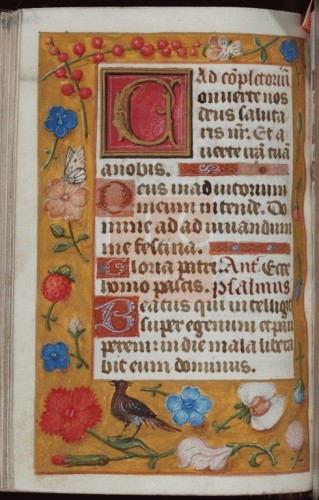 Ad cõpletoriũ
Conuerte nos
deus saluta
ris nr̃. Et a
uerte irã tuã
anobis.
Deus in adiutorium
meum intende. Do
mine ad adiuuandum
me festina.
Gloria patri. Ant. Ecce
homo pascis. psalmus
Beatus qui intelligit
super egenum et pau
perem: in die mala libera
bit eum dominus.